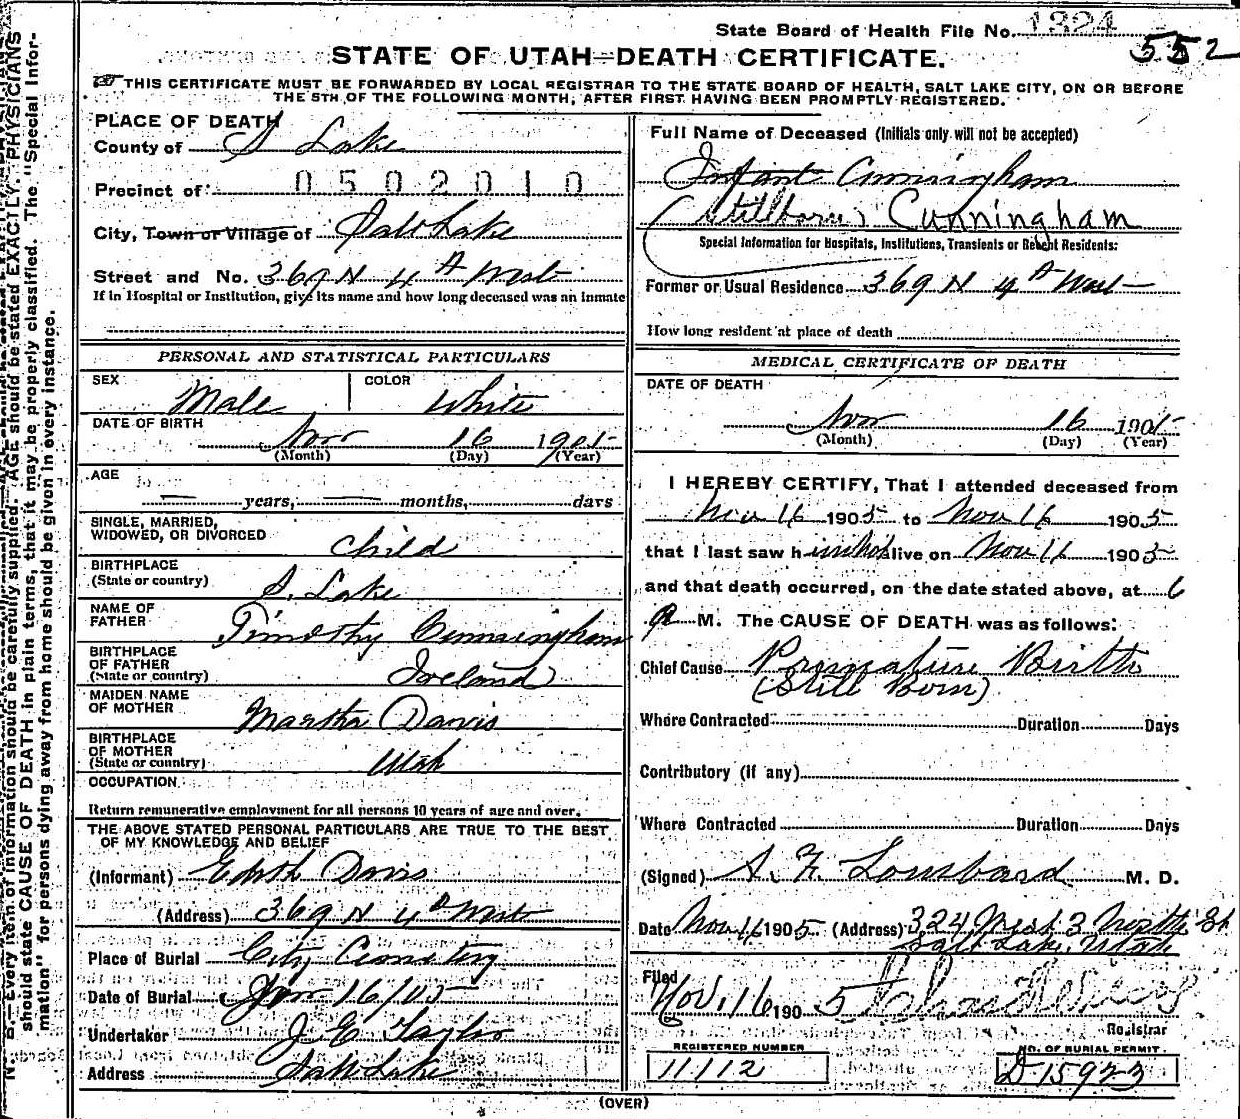 State Board of Health File No. 1324
552
STATE OF UTAH—DEATH CERTIFICATE.
THIS CERTIFICATE MUST BE FORWARDED BY LOCAL REGISTRAR TO THE STATE BOARD OF HEALTH, SALT LAKE CITY, ON OR BEFORE
THE 5TH OF THE FOLLOWING MONTH, AFTER FIRST HAVING BEEN PROMPTLY REGISTERED.
N. B.—Every item of information should be carefully supplied. AGE should be stated EXACTLY. PHYSICIANS
should state CAUSE OF DEATH in plain terms, that it may be properly classified. The "Special Infor-
mation" for persons dying away from home should be given in every instance.
PLACE OF DEATH
County of S Lake
Precinct of 0502010
City, Town or Village of Salt Lake
Street and No. 369 N 4th West
If in Hospital or Institution, give its name and how long deceased was an inmate
PERSONAL AND STATISTICAL PARTICULARS
SEX Male COLOR White
DATE OF BIRTH Nov 16 1905
(Month) (Day) (Year)
AGE
— years, — months, days
SINGLE, MARRIED,
WIDOWED, OR DIVORCED Child
BIRTHPLACE
(State or country) S. Lake
NAME OF
FATHER Timothy Cunningham
BIRTHPLACE
OF FATHER
(State or country) Ireland
MAIDEN NAME
OF MOTHER Martha Davis
BIRTHPLACE
OF MOTHER
(State or country) Utah
OCCUPATION
Return remunerative employment for all persons 10 years of age and over.
THE ABOVE STATED PERSONAL PARTICULARS ARE TRUE TO THE BEST
OF MY KNOWLEDGE AND BELIEF
(Informant) Edith Davis
(Address) 369 N 4th West
Place of Burial City Cemetery
Date of Burial Nov 16/05
Undertaker J E Taylor
Address Salt Lake
Full Name of Deceased (Initials only will not be accepted)
Infant Cunningham
(Stillborn) Cunningham
Special Information for Hospitals, Institutions, Transients or Recent Residents:
Former or Usual Residence 369 N 4th West
How long resident at place of death
MEDICAL CERTIFICATE OF DEATH
DATE OF DEATH
Nov 16 1905
(Month) (Day) (Year)
I HEREBY CERTIFY, That I attended deceased from
Nov 16 1905 to Nov 16 1905
that I last saw h alive on Nov 16 1905
and that death occurred, on the date stated above, at 6
a M. The CAUSE OF DEATH was as follows:
Chief Cause Premature Birth
(Still Born)
Where Contracted Duration Days
Contributory (if any)
Where Contracted Duration Days
(Signed) S. F. Lousbard M. D.
Date Nov 16 1905 (Address) 324 West 3 North St
Salt Lake, Utah
Filed
Nov. 16 1905
Registrar
REGISTERED NUMBER
11112
NO. OF BURIAL PERMIT
D 15923
(OVER)